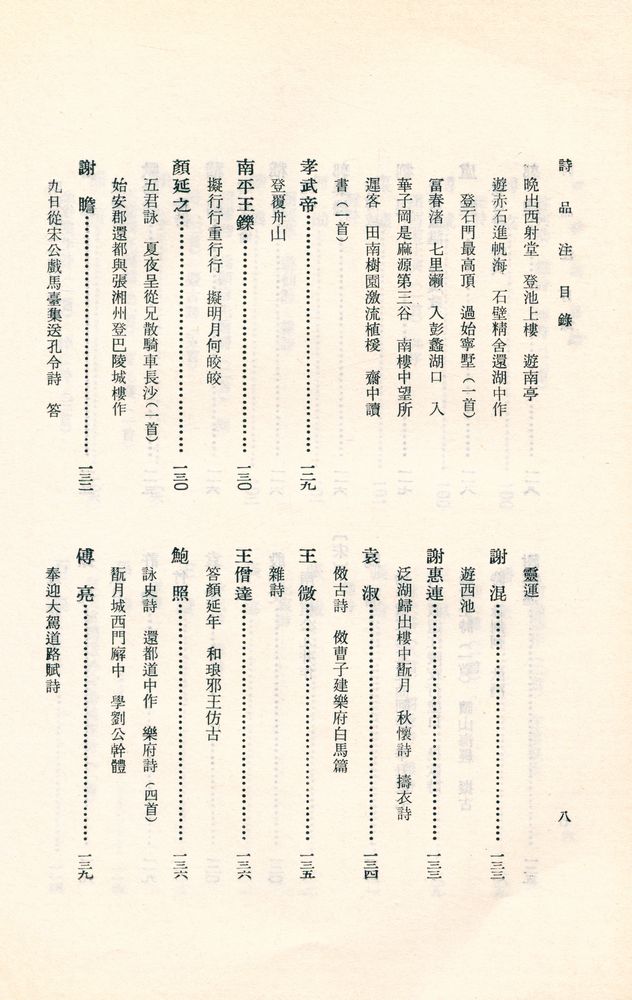 詩品注目錄
晚出西射堂　登池上樓　遊南亭
遊赤石進帆海　石壁精舍還湖中作
登石門最高頂　過始寧墅（一首）
富春渚　七里瀨　入彭蠡湖口　入
華子岡是麻源第三谷　南樓中望所
遲客　田南樹園激流植楥　齋中讀
書（一首）
孝武帝……一二九
登覆舟山
南平王鑠……一三〇
擬行行重行行　擬明月何皎皎
顏延之……一三〇
五君詠　夏夜呈從兄散騎車長沙（一首）
始安郡還都與張湘州登巴陵城樓作
謝　瞻……一三二
九日從宋公戲馬臺集送孔令詩　答
靈運
謝　混……一三三
遊西池
謝惠連……一三三
泛湖歸出樓中翫月　秋懷詩　擣衣詩
袁　淑……一三四
傚古詩　傚曹子建樂府白馬篇
王　微……一三五
雜詩
王僧達……一三六
答顏延年　和琅邪王仿古
鮑　照……一三六
詠史詩　還都道中作　樂府詩（四首）
翫月城西門廨中　學劉公幹體
傅　亮……一三九
奉迎大駕道路賦詩
八